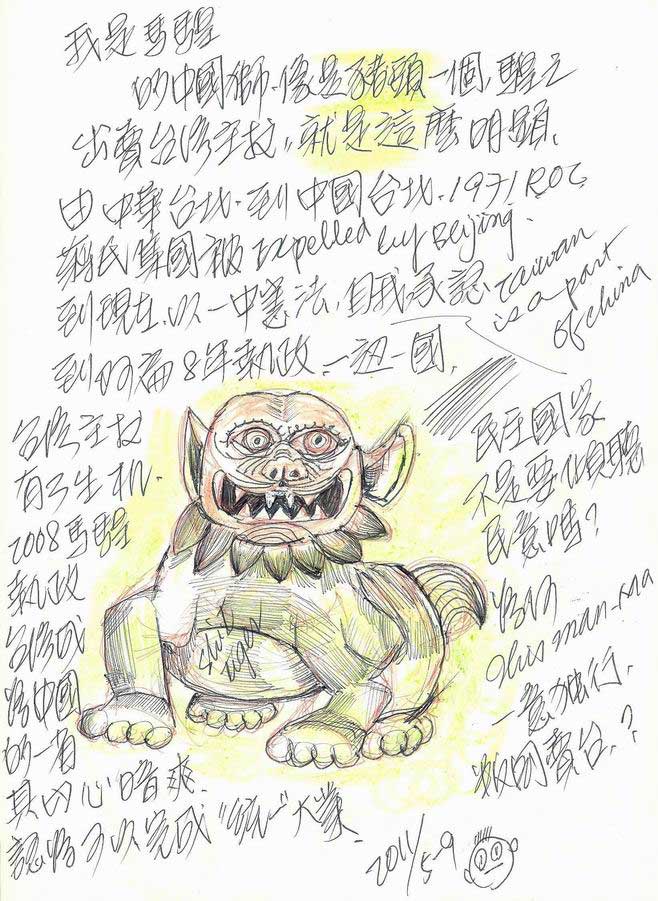 我是馬騜
的中國獅.像是豬頭一個,騜之
出賣台灣主权,就是這麼明顯、
由中華台北.到中國台北.1971 ROC
蔣氏集團被 Expelled by Beijing.
到現在.以一中憲法,自我承認 Taiwan
is a part
of China
到阿扁8年執政.一边一國,
台灣主权
有了生机.
2008馬騜
執政
台灣成
為中國
的一省
其内心暗爽.
認為可以完成"統一"大業、
民主國家
不是要化良聽
民意嗎?
為何
this man-ma
一意独行,
叛國賣台.?
2011/5-9